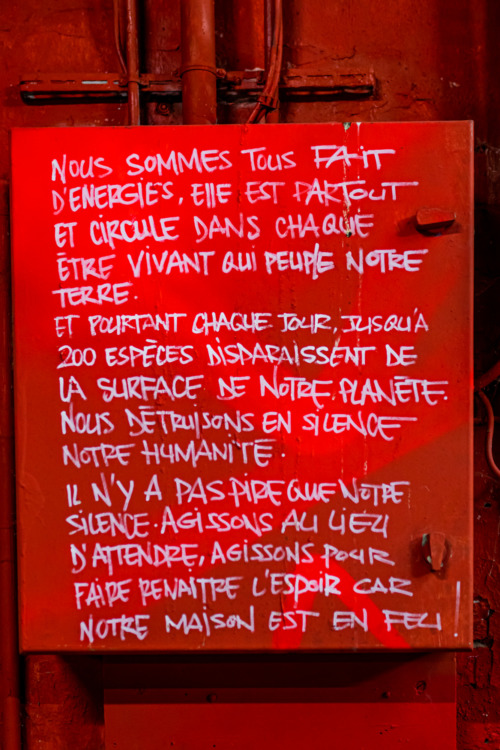 NOUS SOMMES TOUS FAIT
D'ENERGIES, ELLE EST PARTOUT
ET CIRCULE DANS CHAQUE
ÊTRE VIVANT QUI PEUPLE NOTRE
TERRE.
ET POURTANT CHAQUE JOUR, JUSQU'À
200 ESPÈCES DISPARAISSENT DE
LA SURFACE DE NOTRE PLANÈTE.
NOUS DÉTRUISONS EN SILENCE
NOTRE HUMANITÉ.
IL N'Y A PAS PIRE QUE NOTRE
SILENCE. AGISSONS AU LIEU
D'ATTENDRE, AGISSONS POUR
FAIRE RENAITRE L'ESPOIR CAR
NOTRE MAISON EST EN FEU !